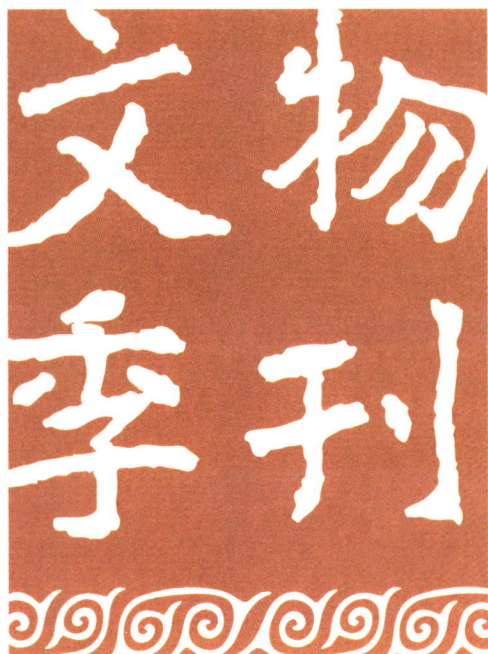 文物
季刊